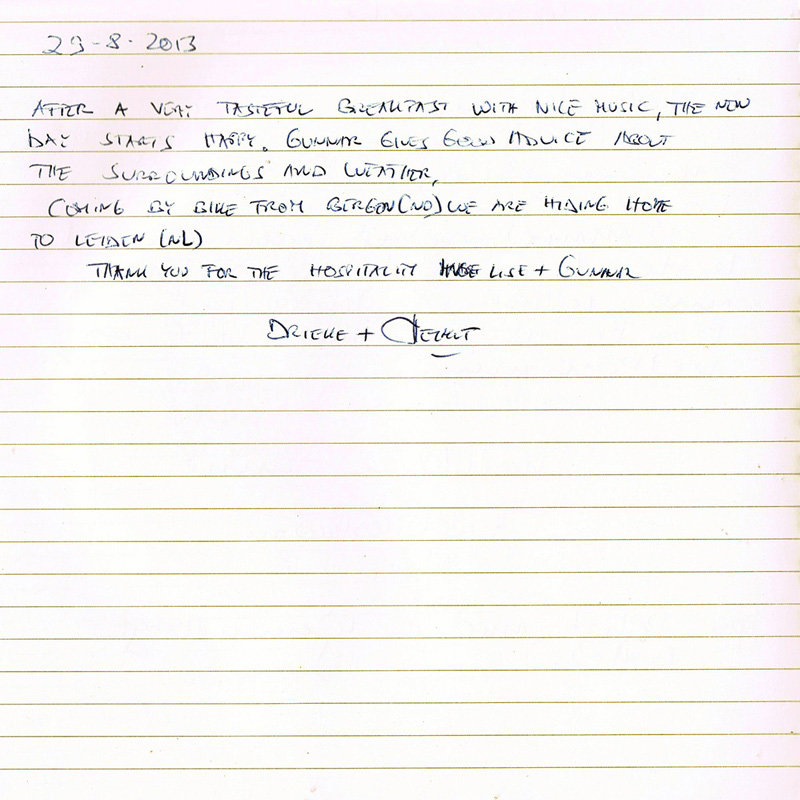 29-8-2013
AFTER A VERY TASTEFUL BREAKFAST WITH NICE MUSIC, THE NEW
DAY STARTS HAPPY. GUNNAR GIVES GOOD ADVICE ABOUT
THE SURROUNDINGS AND WEATHER,
COMING BY BIKE FROM BERGEN(NO) WE ARE HIDING HOME
TO LEIDEN (NL)
THANK YOU FOR THE HOSPITALITY LISE + GUNNAR
DRIEKE +